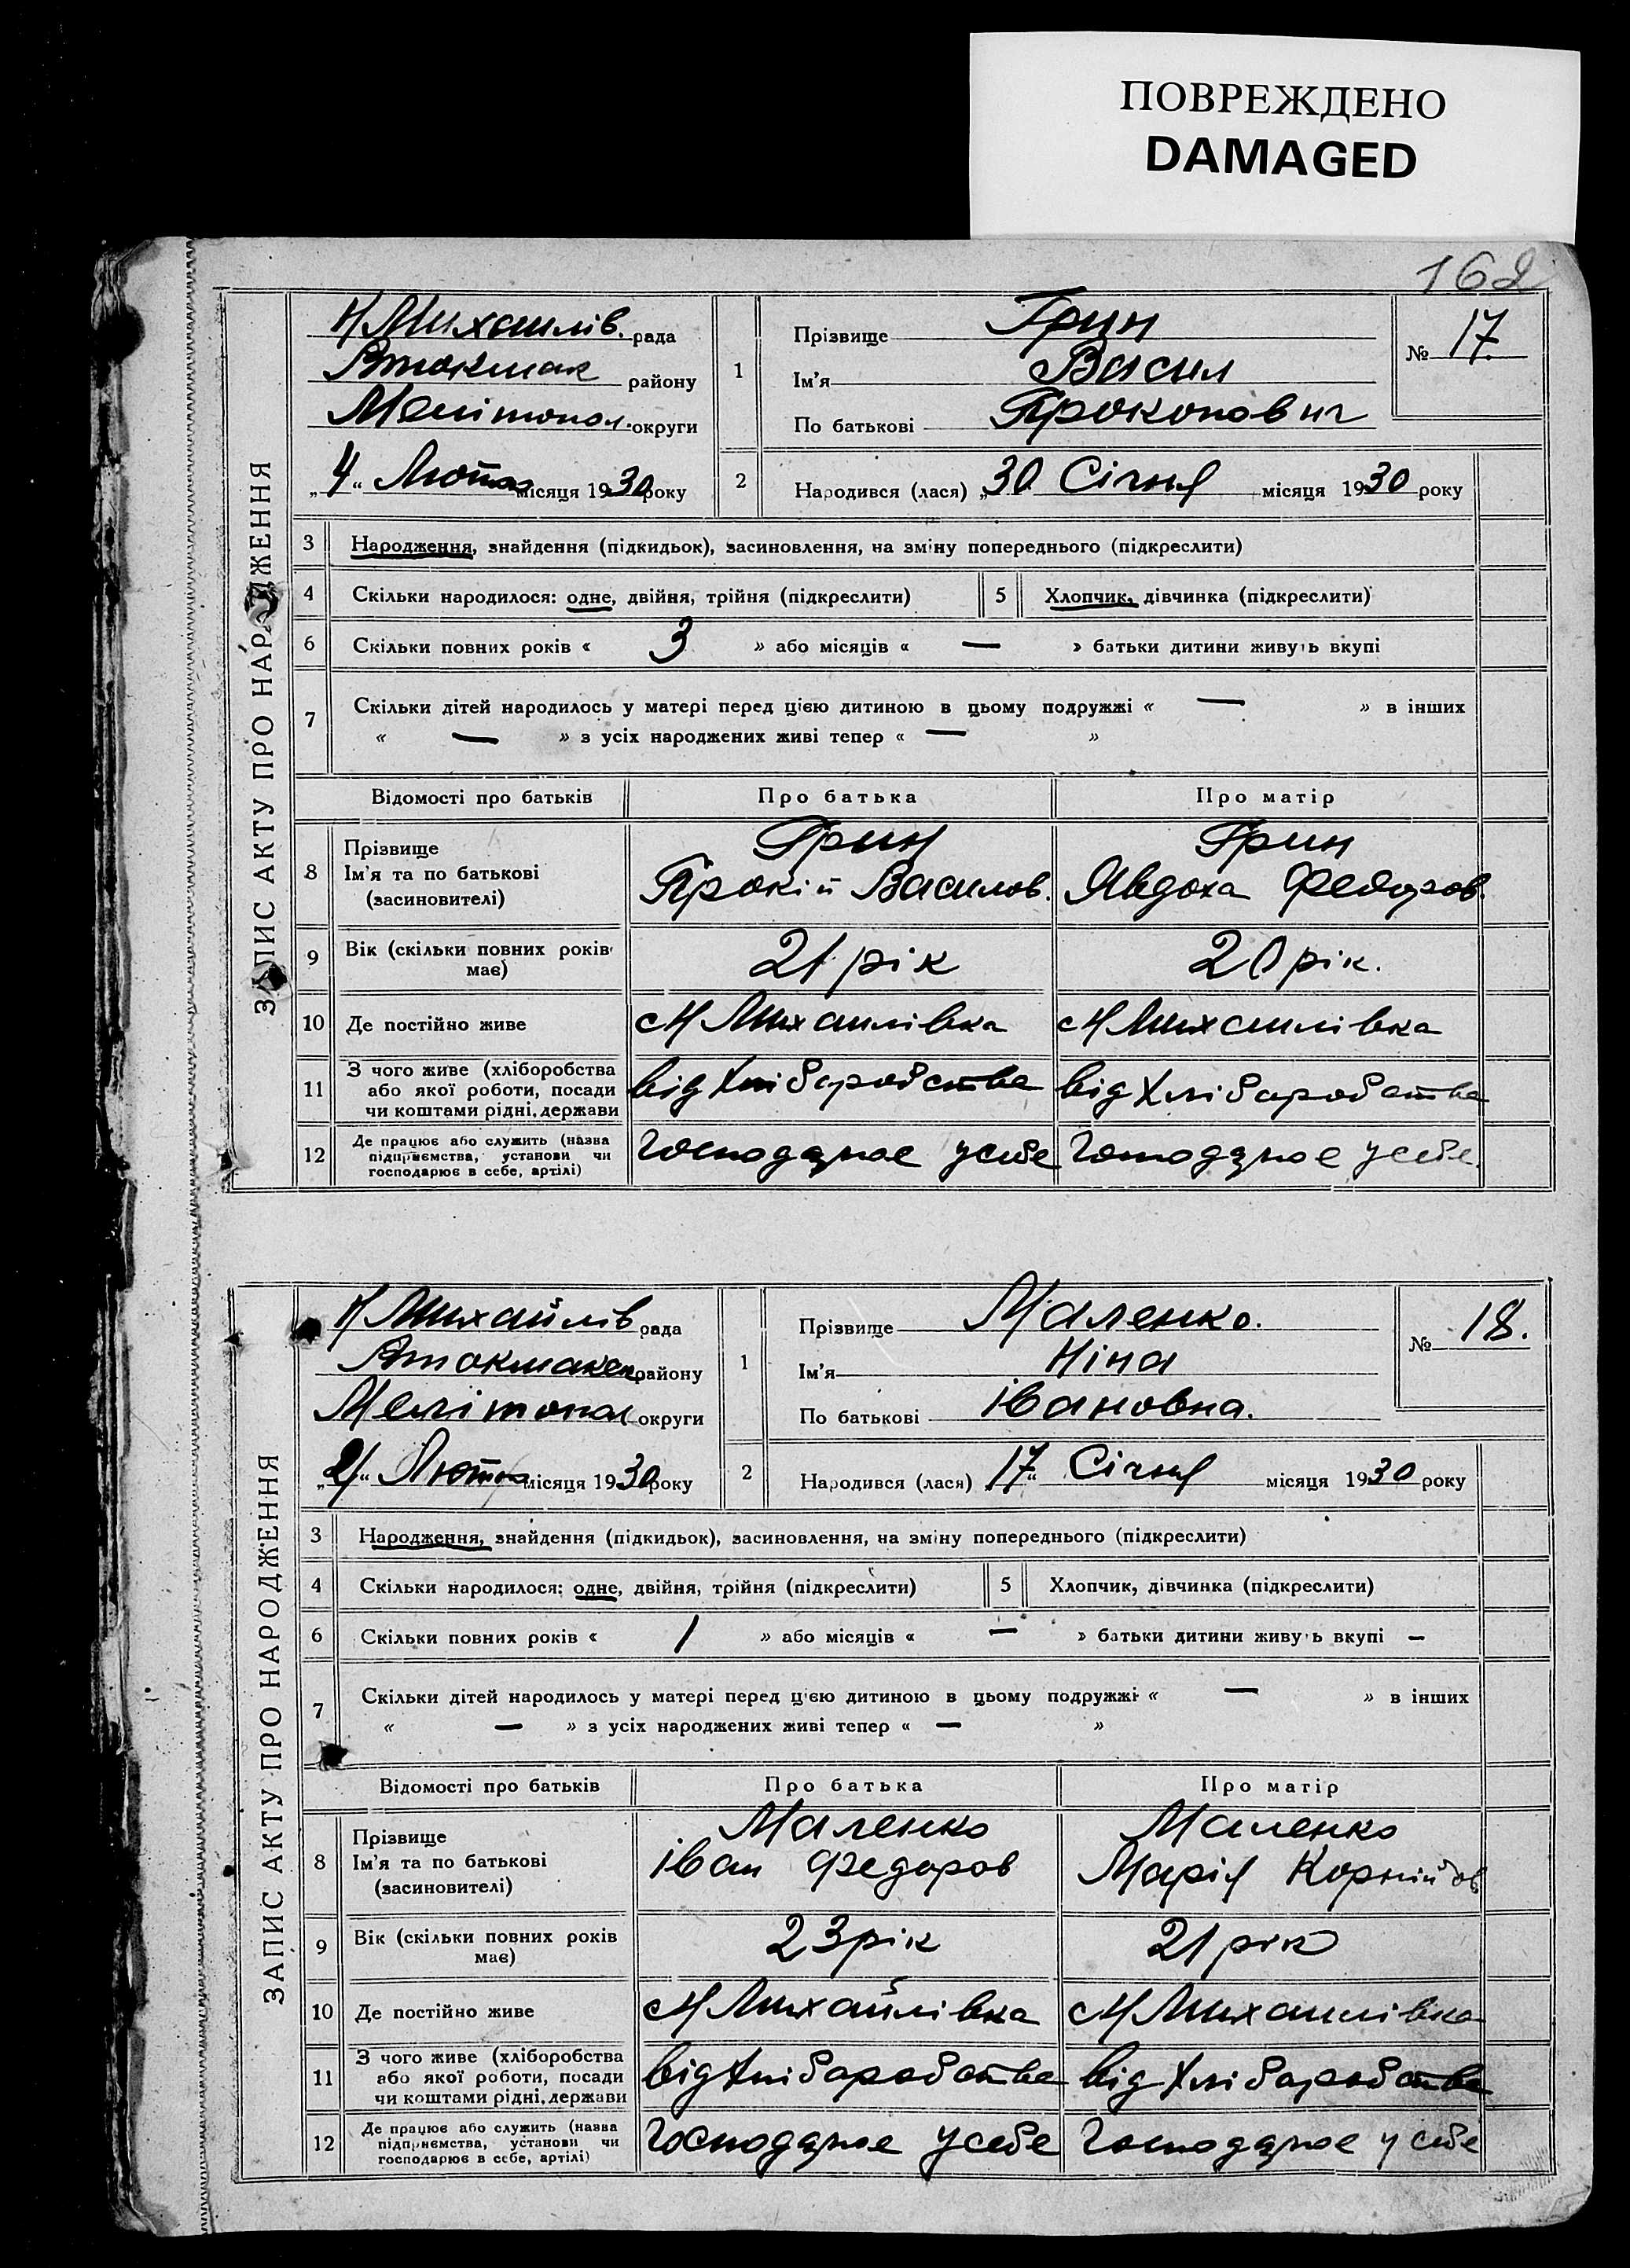 ПОВРЕЖДЕНО
DAMAGED
162
ЗАПИС АКТУ ПРО НАРОДЖЕННЯ
Н Михаилів. рада
Втокмак району
Мелітопол. округи
„4“ Лютого місяця 1930 року
1
Прізвище Грин
Ім'я Васил
По батькові Прокопович
№ 17.
2
Народився (лася) „30 Січня місяця 1930 року
3 Народження, знайдення (підкидьок), засиновлення, на зміну попереднього (підкреслити)
4 Скільки народилося: одне, двійня, трійня (підкреслити) 5 Хлопчик, дівчинка (підкреслити)
6 Скільки повних років « 3 » або місяців « — » батьки дитини живуть вкупі
7 Скільки дітей народилось у матері перед цією дитиною в цьому подружжі « — » в інших
« — » з усіх народжених живі тепер « — »
Відомості про батьків Про батька Про матір
8 Прізвище Грин Грин
Ім'я та по батькові Прокіп Василов. Явдоха Федоров.
(засиновителі)
9 Вік (скільки повних років має) 21 рік 20 рік.
10 Де постійно живе с Н Михаилівка с Н Михаилівка
11 З чого живе (хліборобства
або якої роботи, посади від Хліборобства від Хліборобства
чи коштами рідні, держави
12 Де працює або служить (назва
підприємства, установи чи Господарює у себе Господарює у себе.
господарює в себе, артілі)
ЗАПИС АКТУ ПРО НАРОДЖЕННЯ
Н Михайлів рада
району
Мелітопол округи
„21“ Лютого місяця 1930 року
1
Прізвище Маленко.
Ім'я Ніна
По батькові Івановна.
№ 18.
2
Народився (лася) 17“ Січня місяця 1930 року
3 Народження, знайдення (підкидьок), засиновлення, на зміну попереднього (підкреслити)
4 Скільки народилося: одне, двійня, трійня (підкреслити) 5 Хлопчик, дівчинка (підкреслити)
6 Скільки повних років « 1 » або місяців « — » батьки дитини живуть вкупі —
7 Скільки дітей народилось у матері перед цією дитиною в цьому подружжі « — » в інших
« — » з усіх народжених живі тепер « — »
Відомості про батьків Про батька Про матір
8 Прізвище Маленко Маленко
Ім'я та по батькові Іван Федоров Марія Корнійов
(засиновителі)
9 Вік (скільки повних років має) 23 рік 21 рік
10 Де постійно живе с Н Михайлівка с Н Михаилівка
11 З чого живе (хліборобства
або якої роботи, посади від Хліборобства від Хліборобства
чи коштами рідні, держави
12 Де працює або служить (назва
підприємства, установи чи Господарює у себе Господарює у себе
господарює в себе, артілі)